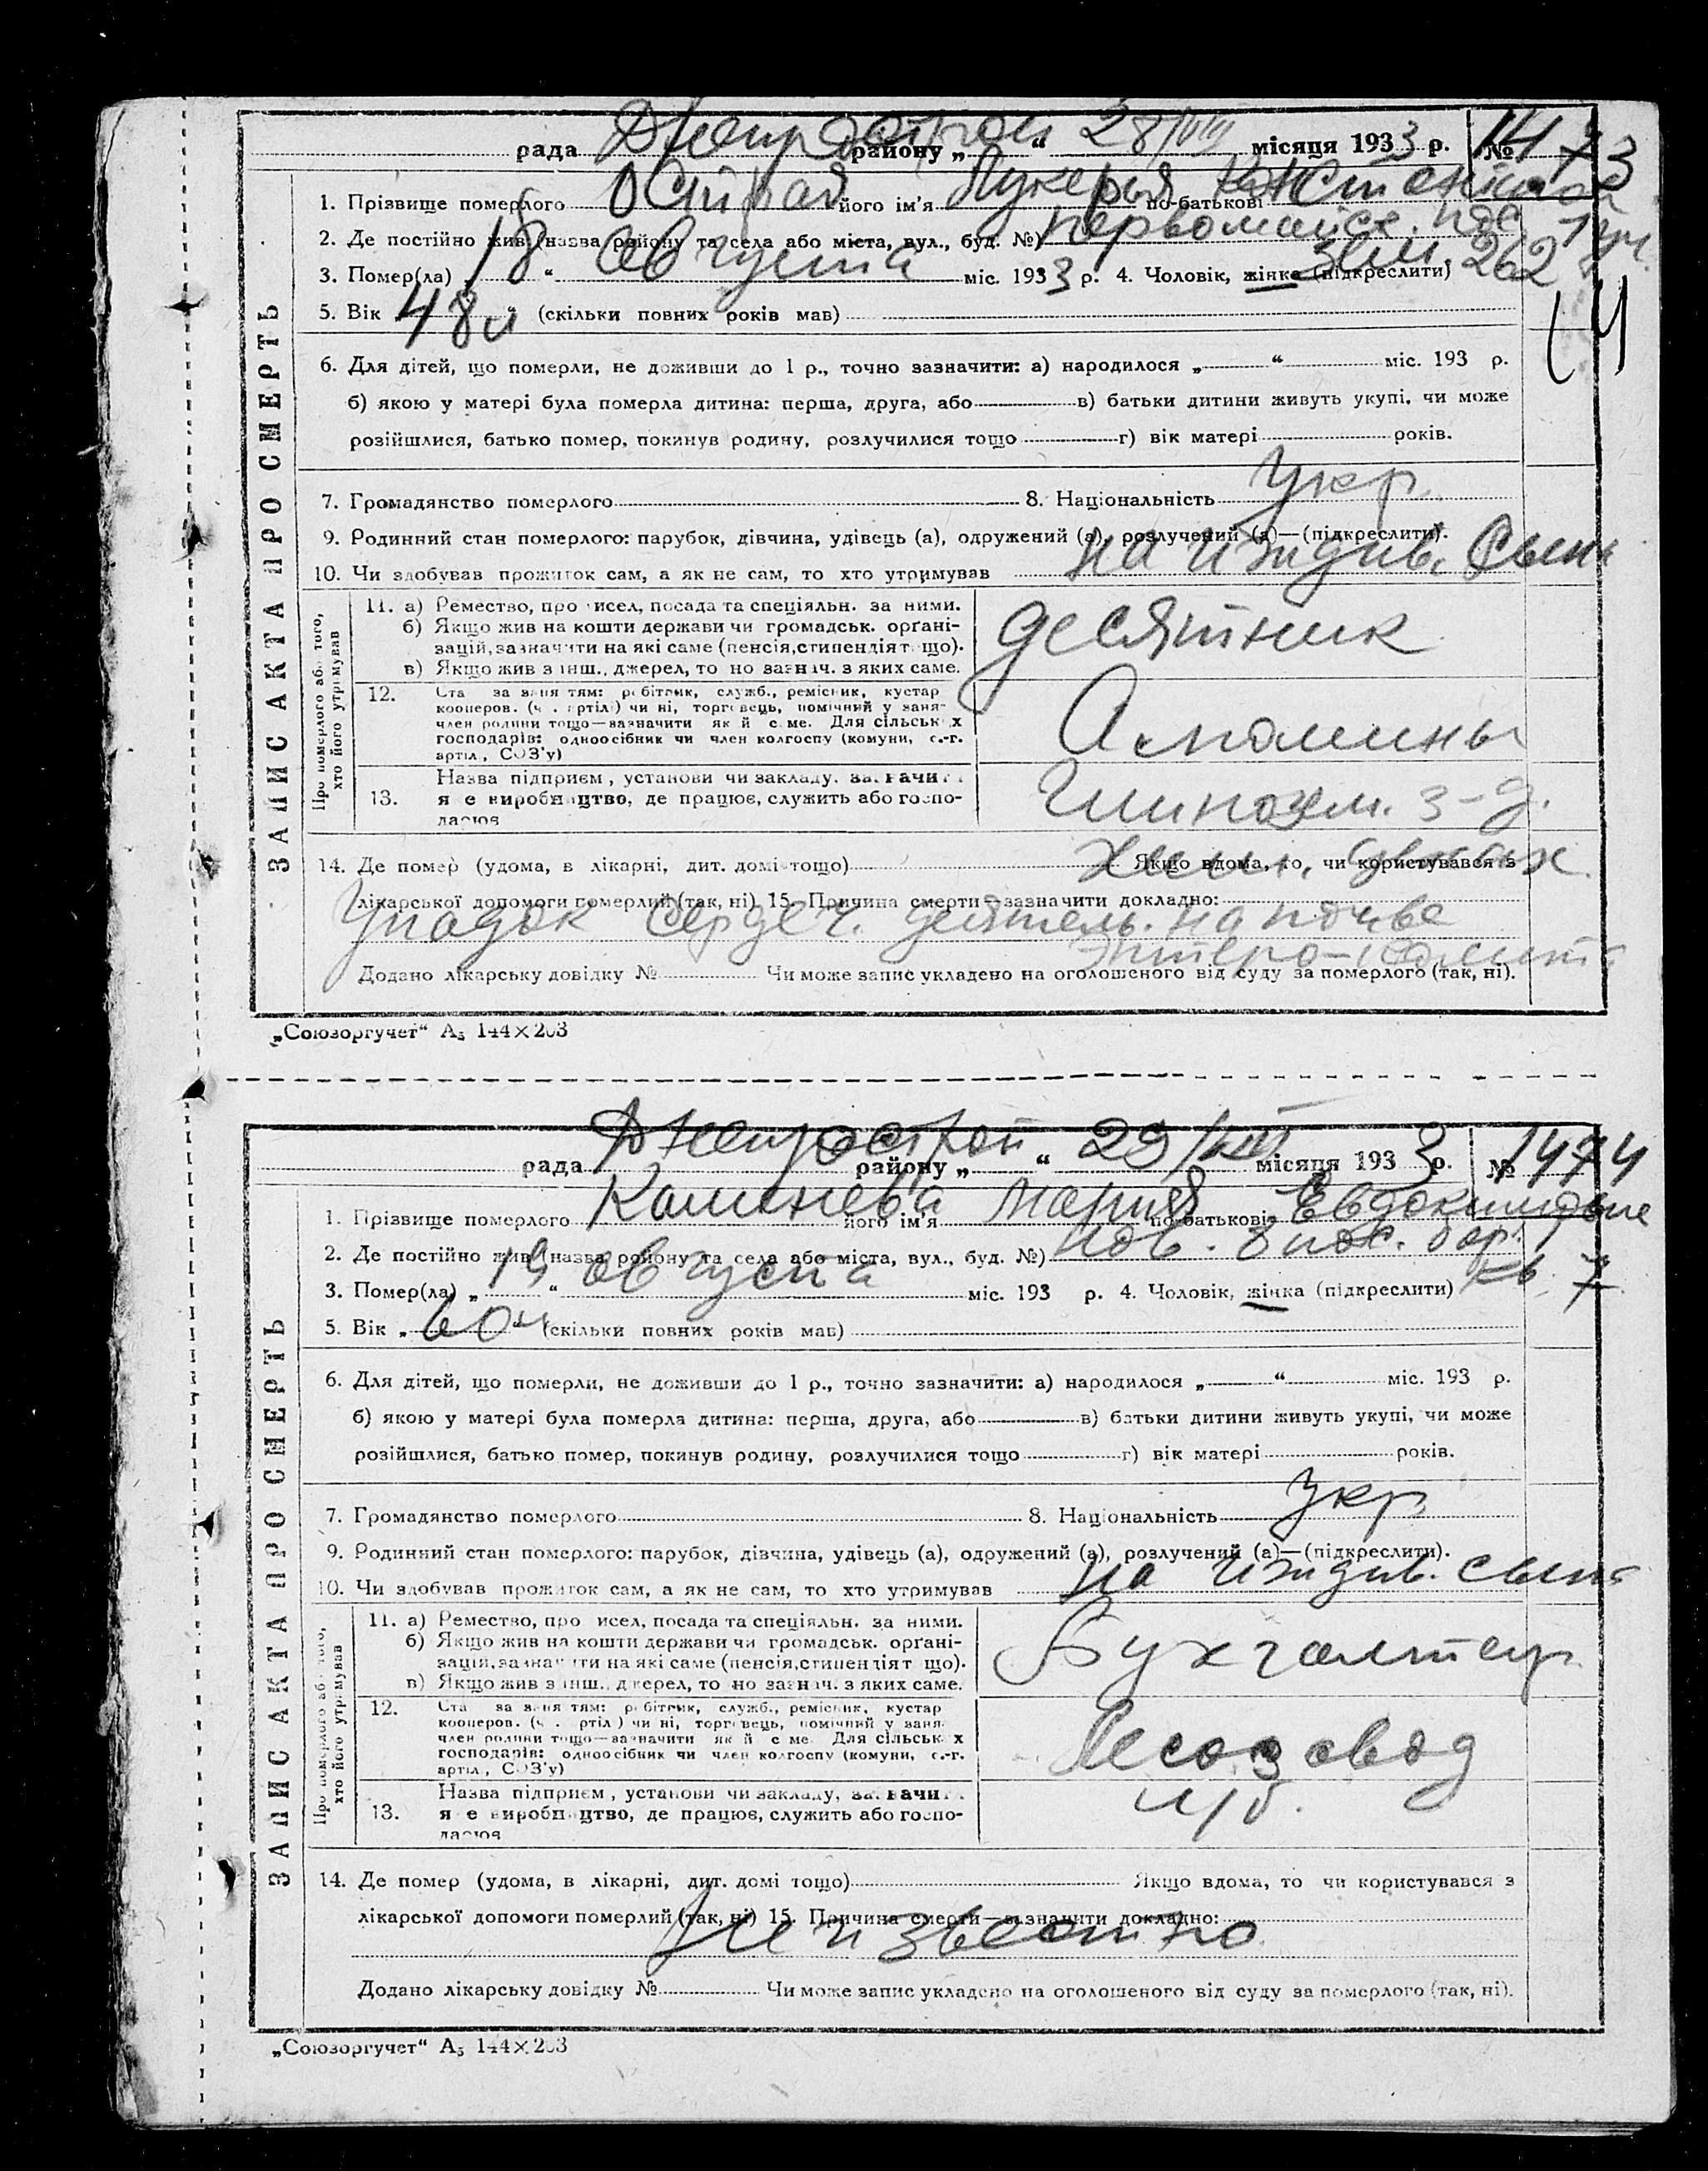 рада Днепрострой району „ “ 28/VIII місяця 1933 р. № 1473
1. Прізвище померлого Острая його ім’я Лукерья по-батькові
2. Де постійно жив (назва району та села або міста, вул., буд. №) первомайск. пос. 1 уч.
262
3. Помер(ла) 18 “ августа міс. 1933 р. 4. Чоловік, жінка (підкреслити)
5. Вік 48 (скільки повних років мав)
6. Для дітей, що померли, не доживши до 1 р., точно зазначити: а) народилося „ “ міс. 193 р.
б) якою у матері була померла дитина: перша, друга, або в) батьки дитини живуть укупі, чи може
розійшлися, батько помер, покинув родину, розлучилися тощо г) вік матері років.
7. Громадянство померлого 8. Національність Укр.
9. Родинний стан померлого: парубок, дівчина, удівець (а), одружений (а), розлучений (а)—(підкреслити).
10. Чи здобував прожиток сам, а як не сам, то хто утримував на иждив. Сына
ЗАПИС АКТА ПРО СМЕРТЬ
Про померлого або того,
хто його утримував
11. а) Ремество, про исел, посада та спеціяльн. за ними.
б) Якщо жив на кошти держави чи громадськ. орґані-
зацій, зазначити на які саме (пенсія, стипендія т що).
в) Якщо жив з інш., джерел, то но зазнач. з яких саме.
десятник
12. Ста за заня тям: робітник, служб., ремісник, кустар
кооперов. (ч . артілі) чи ні, торговець, помічний у заня-
член родини тощо—зазначити як й саме. Для сільськ х
господарів: одноосібник чи член колгоспу (комуни, с.-г.
артіл, СОЗ’у)
13. Назва підприєм , установи чи закладу, за начи
я е виробництво, де працює, служить або госпо-
дарює
з-д.
14. Де помер (удома, в лікарні, дит. домі тощо) Якщо вдома, то, чи користувався з
лікарської допомоги померлий (так, ні) 15. Причина смерти—зазначити докладно:
Упадок сердеч. деятель. на почве
энтеро-колита
Додано лікарську довідку № Чи може запис укладено на оголошеного від суду за померлого (так, ні).
„Союзоргучет“ А5 144×203
рада Днепрострой району „ “ 29/VIII місяця 1933 р. № 1474
1. Прізвище померлого Каменева його ім’я Мария по-батькові Евдокимовне
2. Де постійно жив (назва району та села або міста, вул., буд. №) пов. 8 пос. бар.
кв. 7
3. Помер(ла) „ 19 “ августа міс. 193 р. 4. Чоловік, жінка (підкреслити)
5. Вік „ 60 “ (скільки повних років мав)
6. Для дітей, що померли, не доживши до 1 р., точно зазначити: а) народилося „ “ міс. 193 р.
б) якою у матері була померла дитина: перша, друга, або в) батьки дитини живуть укупі, чи може
розійшлися, батько помер, покинув родину, розлучилися тощо г) вік матері років.
7. Громадянство померлого 8. Національність Укр.
9. Родинний стан померлого: парубок, дівчина, удівець (а), одружений (а), розлучений (а)—(підкреслити).
10. Чи здобував прожиток сам, а як не сам, то хто утримував на иждив. сына
ЗАПИС АКТА ПРО СМЕРТЬ
Про померлого або того,
хто його утримував
11. а) Ремество, про исел, посада та спеціяльн. за ними.
б) Якщо жив на кошти держави чи громадськ. орґані-
зацій, зазначити на які саме (пенсія, стипендія т що).
в) Якщо жив з інш., джерел, то но зазнач. з яких саме.
Бухгалтер
12. Ста за заня тям: робітник, служб., ремісник, кустар
кооперов. (ч . ртіл ) чи ні, торговець, помічний у заня-
член родини тощо—зазначити як й с ме. Для сільськ х
господарів: одноосібник чи член колгоспу (комуни, с.-г.
артіл, СОЗ’у)
Лесозавод
13. Назва підприєм , установи чи закладу, за начи
я е виробництво, де працює, служить або госпо-
дарює
14. Де помер (удома, в лікарні, дит. домі тощо) Якщо вдома, то чи користувався з
лікарської допомоги померлий (так, ні) 15. Причина смерти—зазначити докладно:
Неизвестно
Додано лікарську довідку № Чи може запис укладено на оголошеного від суду за померлого (так, ні).
„Союзоргучет“ А5 144×203